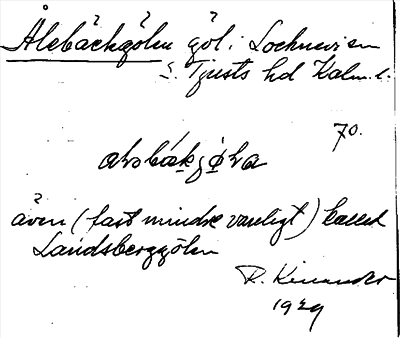 Ålebäcksgölen göl i Locknevi sn
S. Tjusts hd Kalm. l.
70.
även (fast mindre vanligt) kallad
Landsberggölen
R. Kinander
1929